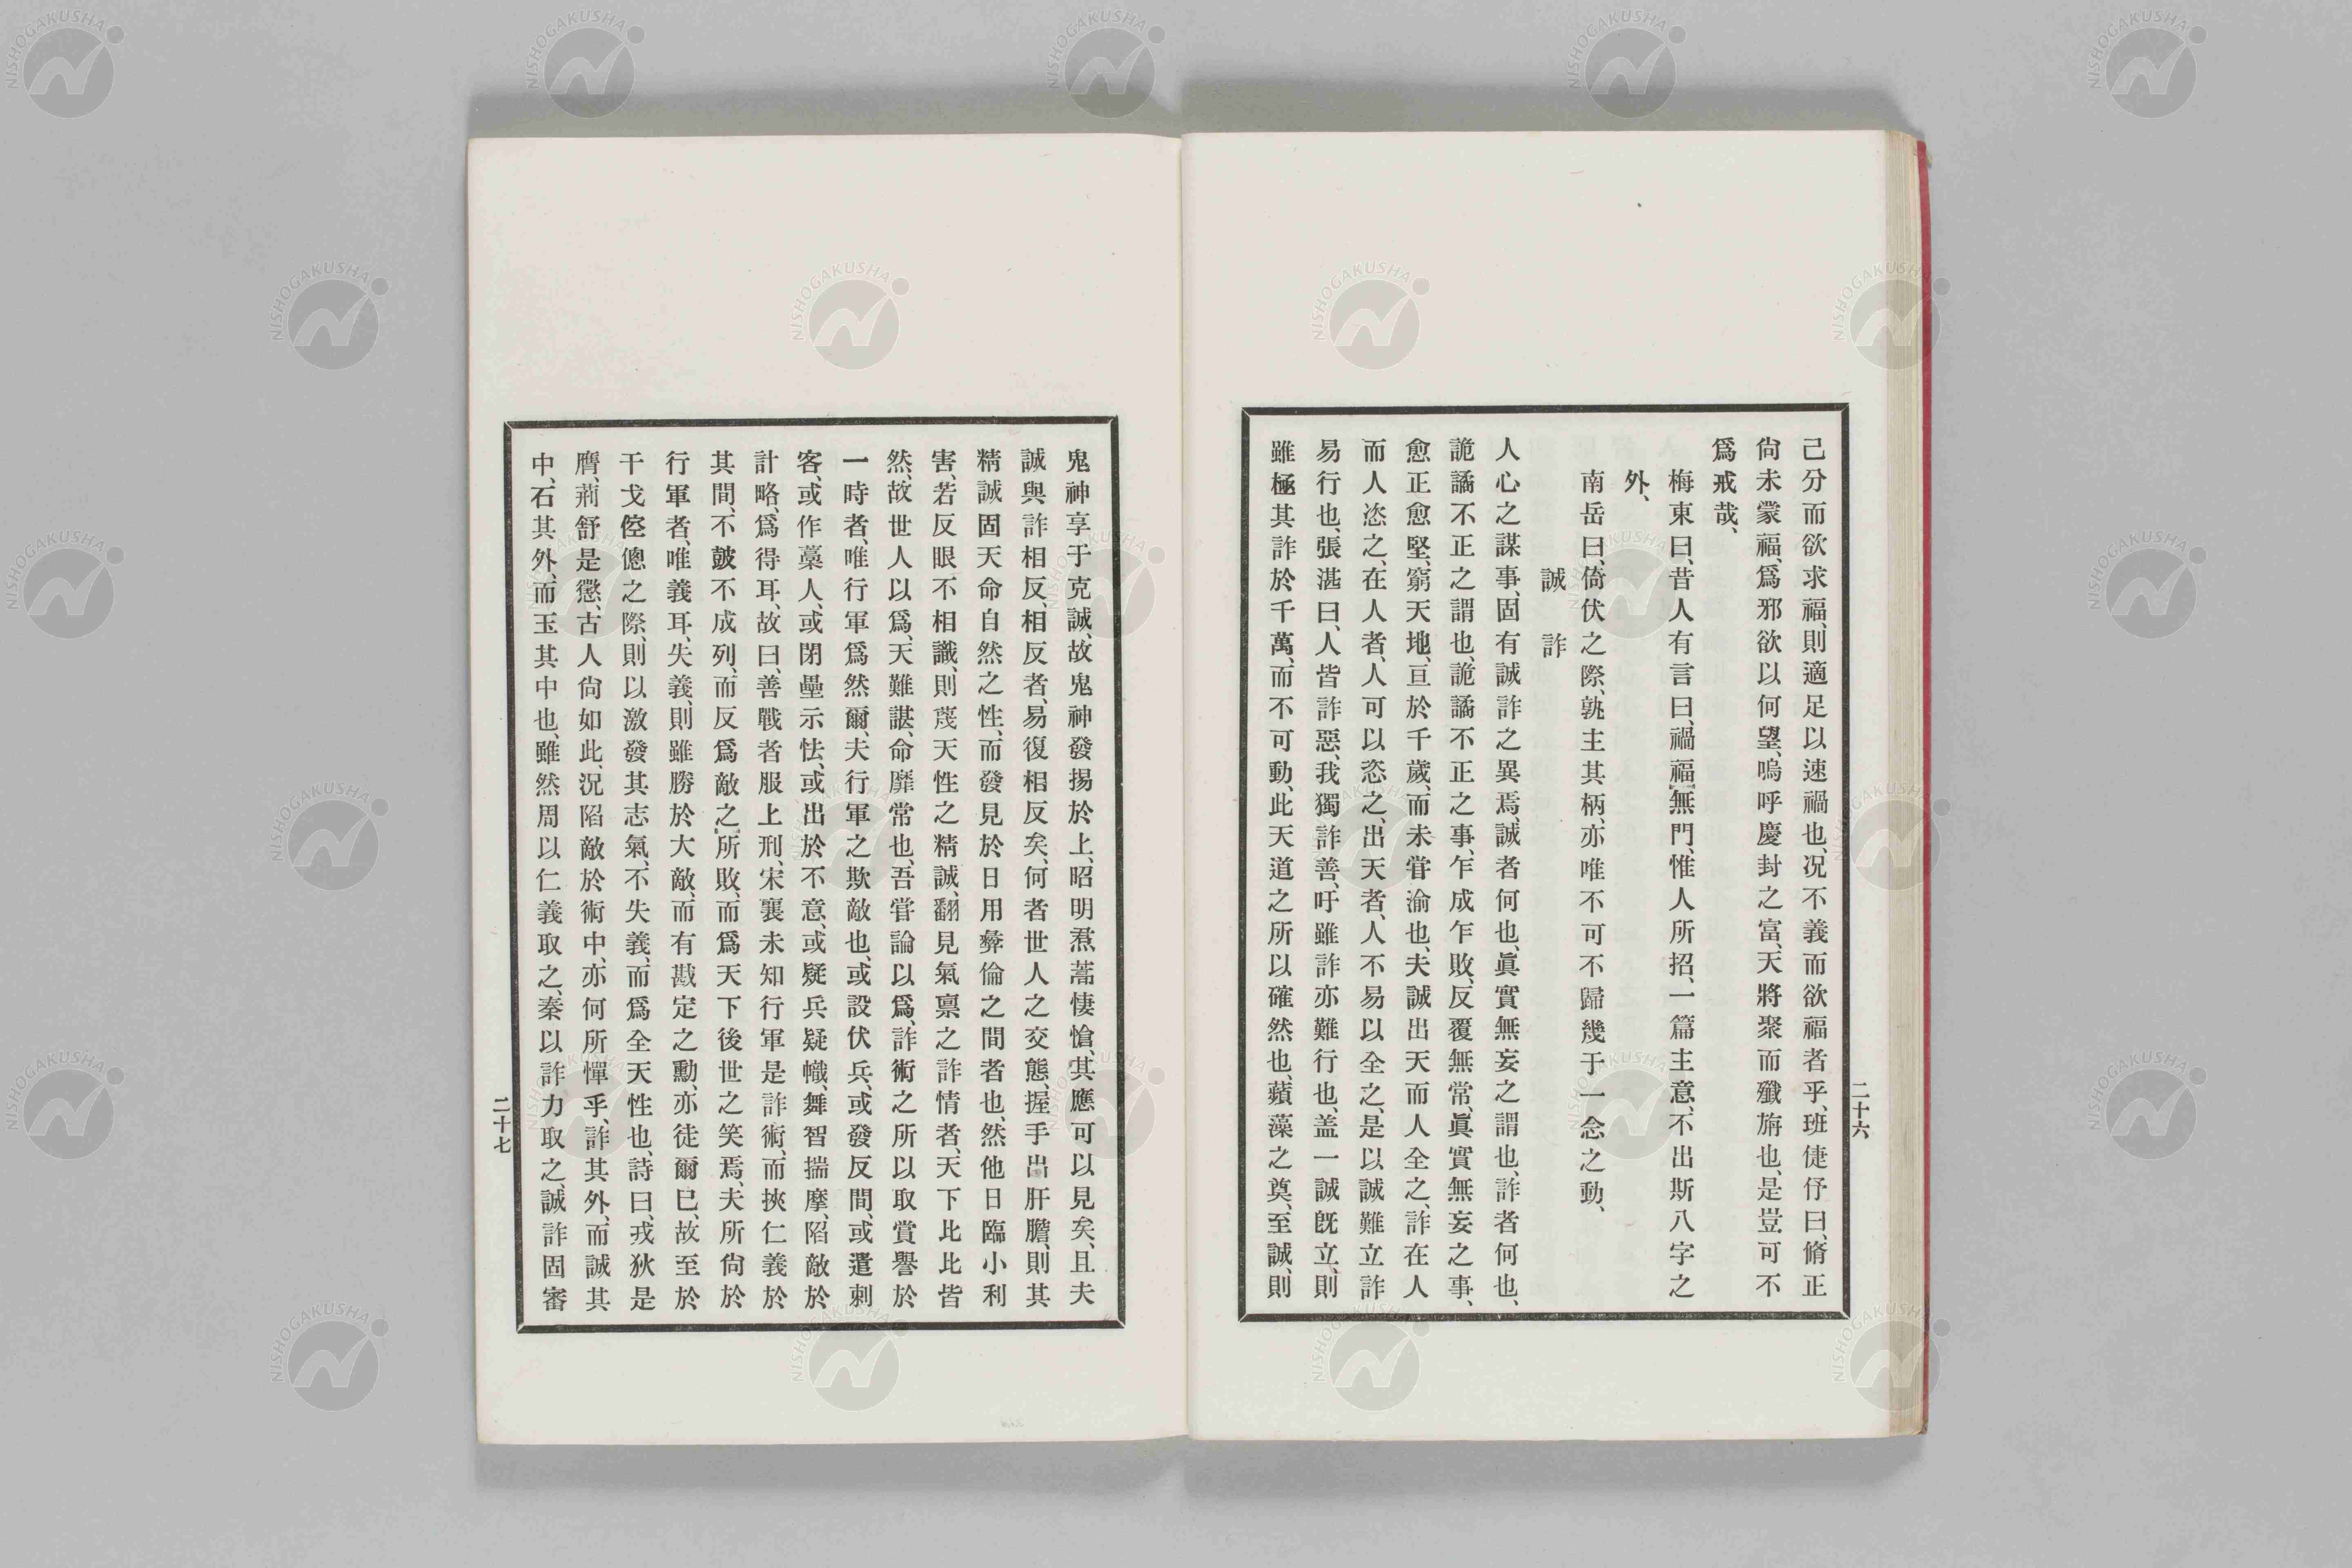 己分而欲求福、則適足以速禍也、况不義而欲福者乎、班倢伃曰、脩正
尙未蒙福、爲邪欲以何望、嗚呼慶封之富、天將聚而殲旃也、是豈可不
爲戒哉、
梅東曰、昔人有言曰、禍福無門、惟人所招、一篇主意、不出斯八字之
外、
南岳曰、倚伏之際、孰主其柄、亦唯不可不歸幾于一念之動、
誠詐
人心之謀事、固有誠詐之異焉、誠者何也、眞實無妄之謂也、詐者何也、
詭譎不正之謂也、詭譎不正之事、乍成乍敗、反覆無常、眞實無妄之事、
愈正愈堅、窮天地、亘於千歲、而未甞渝也、夫誠出天而人全之、詐在人
而人恣之、在人者、人可以恣之、出天者、人不易以全之、是以誠難立詐
易行也、張湛曰、人皆詐惡、我獨詐善、吁雖詐亦難行也、盖一誠旣立、則
雖極其詐於千萬、而不可動、此天道之所以確然也、蘋藻之奠、至誠、則
二十六
鬼神享于克誠、故鬼神發揚於上、昭明焄蒿悽愴、其應可以見矣、且夫
誠與詐相反、相反者、易復相反矣、何者世人之交態、握手出肝膽、則其
精誠固天命自然之性、而發見於日用彜倫之間者也、然他日臨小利
害、若反眼不相識、則蔑天性之精誠、翻見氣禀之詐情者、天下比比皆
然、故世人以爲、天難諶、命靡常也、吾甞論以爲、詐術之所以取賞譽於
一時者、唯行軍爲然爾、夫行軍之欺敵也、或設伏兵、或發反間、或遣刺
客、或作藁人、或閉壘示怯、或出於不意、或疑兵疑幟、舞智揣摩、陷敵於
計略、爲得耳、故曰、善戰者服上刑、宋襄未知行軍是詐術、而挾仁義於
其間、不皷不成列、而反爲敵之所敗、而爲天下後世之笑焉、夫所尙於
行軍者、唯義耳、失義、則雖勝於大敵、而有戡定之勳、亦徒爾已、故至於
干戈倥傯之際、則以激發其志氣、不失義、而爲全天性也、詩曰、戎狄是
膺、荊舒是懲、古人尙如此、況陷敵於術中、亦何所憚乎、詐其外、而誠其
中、石其外、而玉其中也、雖然周以仁義取之、秦以詐力取之、誠詐固審
二十七
NISHOGAKUSHA